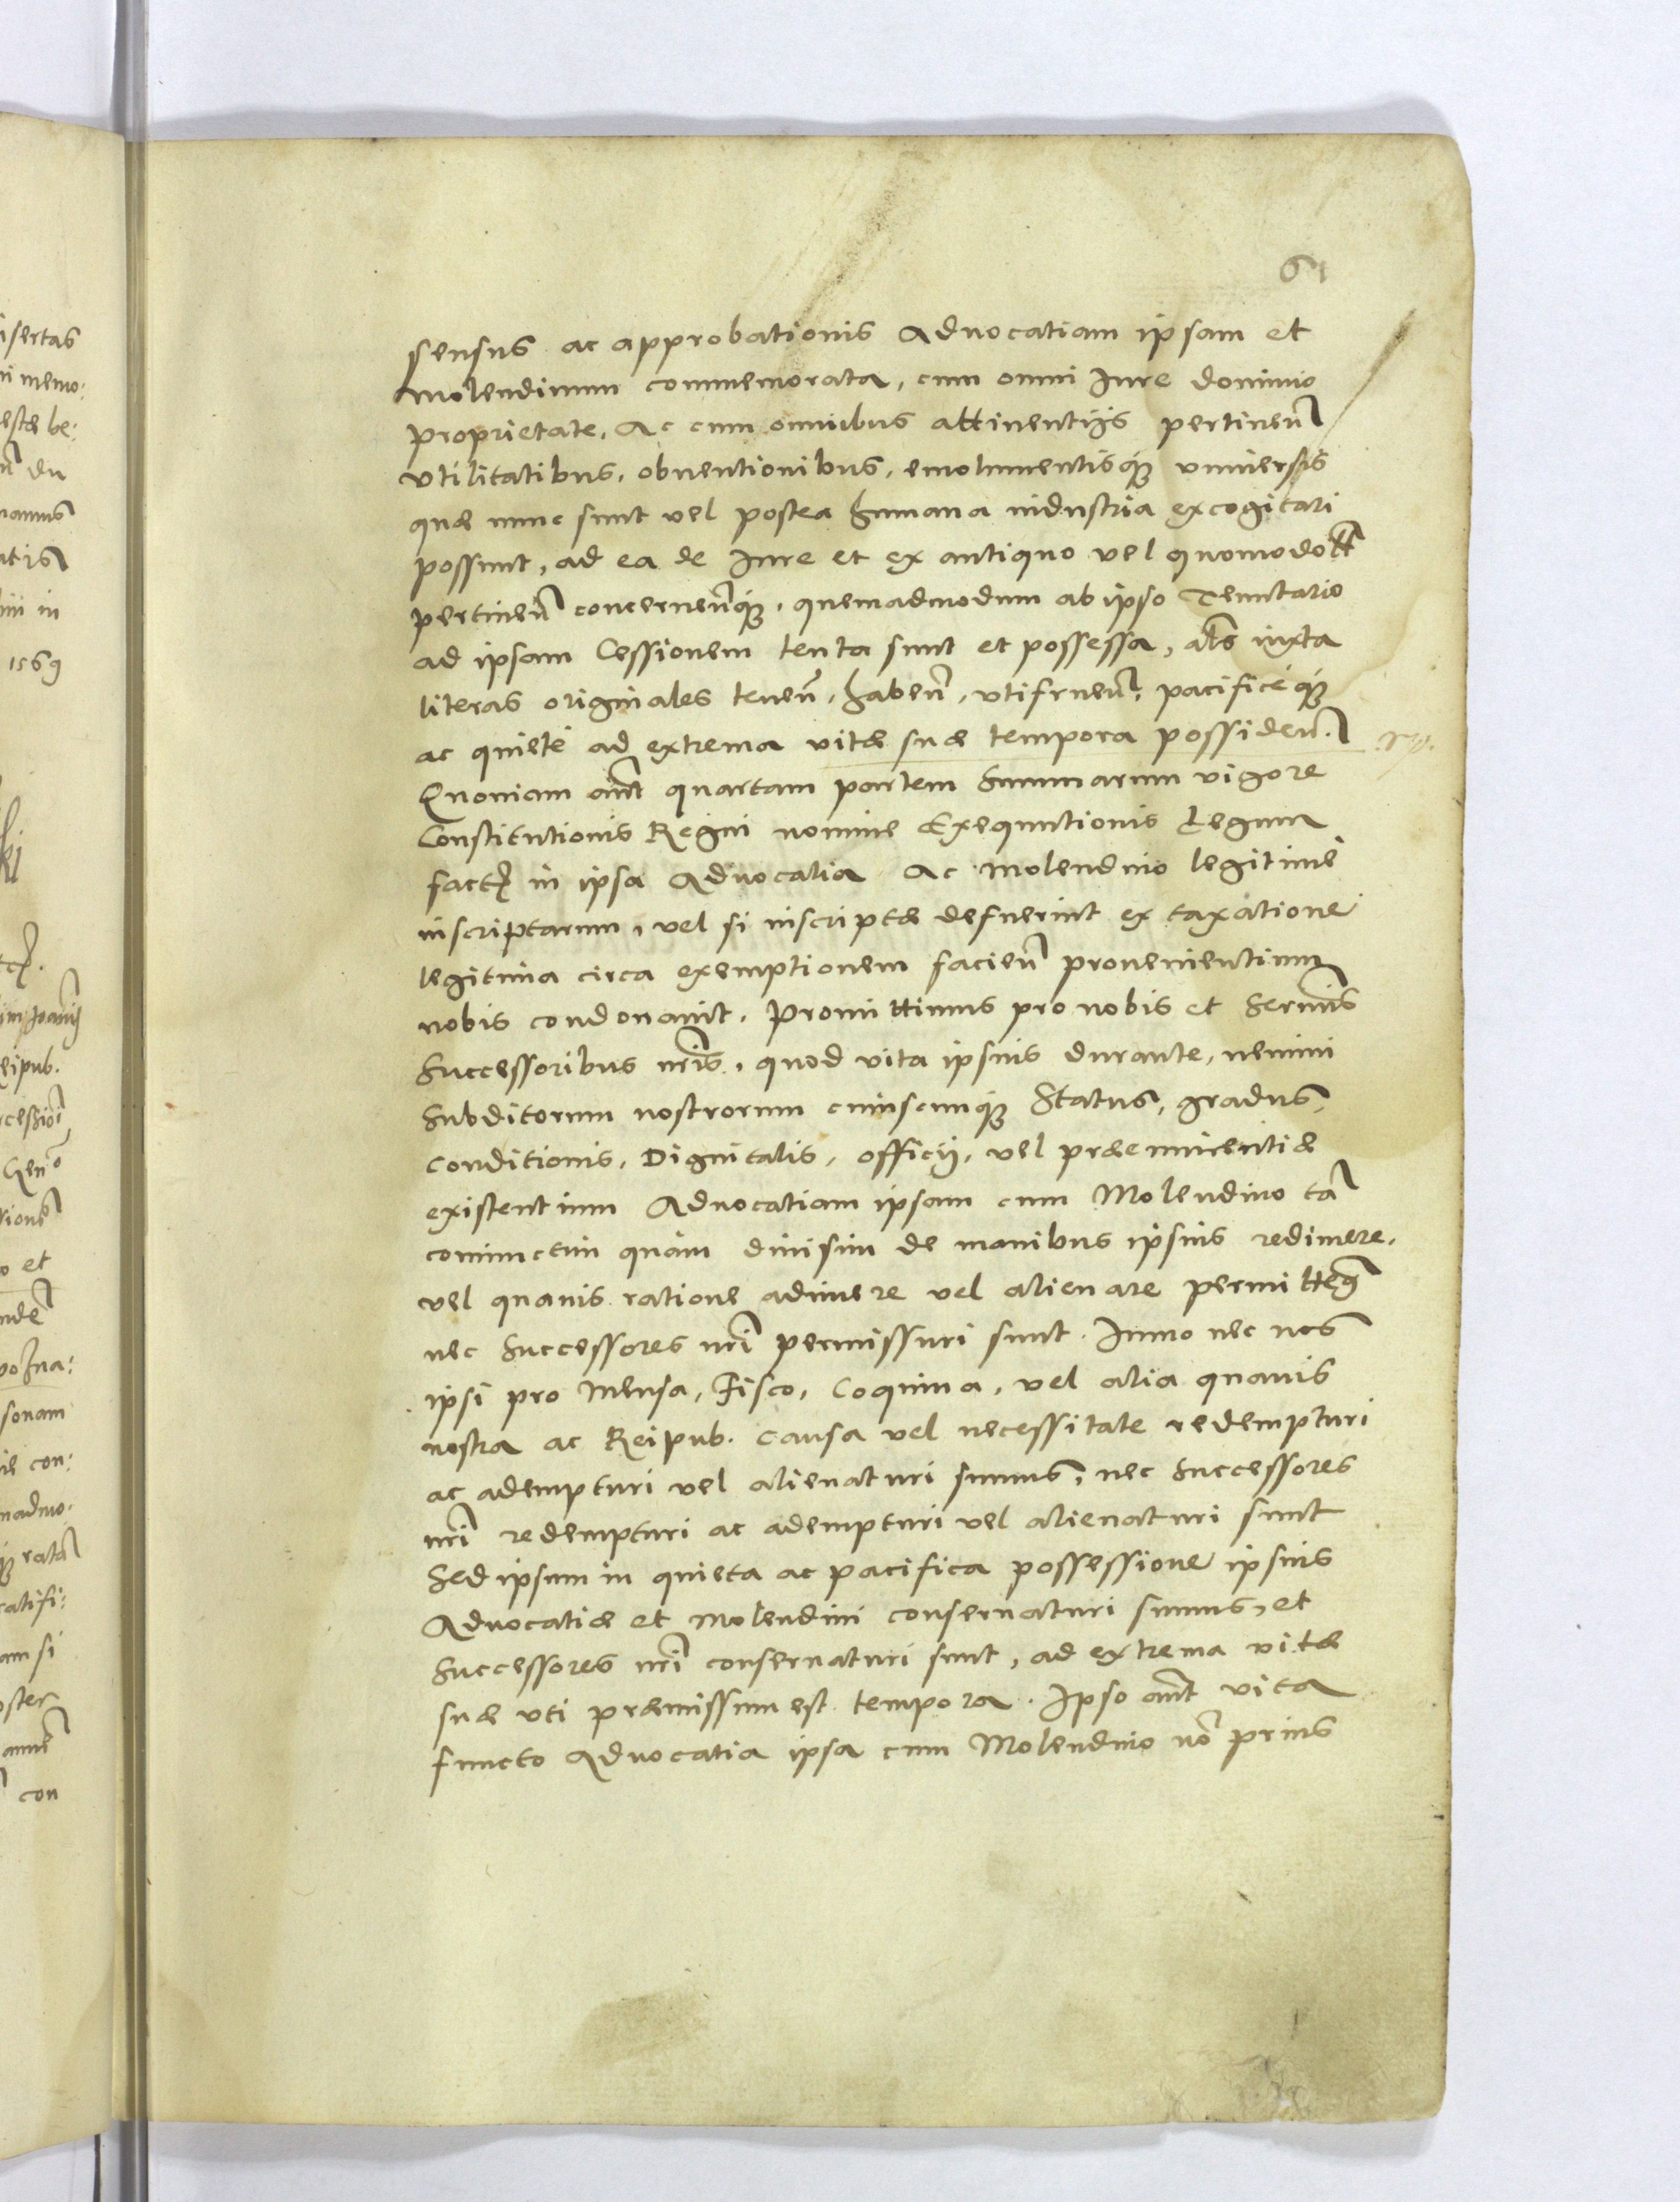 61
sensus ac approbationis Advocatiam ipsam et
Molendinum commemorata, cum omni Iure dominio
proprietate, Ac cum omnibus attinentijs pertineñ
vtilitatibus, obuentionibus, emolumentisq́ꝫ vniuersis
quæ nunc sunt vel postea humana industria excogitari
possunt, ad ea de Iure et ex antiquo vel quomodolt
pertineñ concerneñq́ꝫ, quemadmodum ab ipso Tenutario
ad ipsam Cessionem tenta sunt et possessa, als iuxta
literas originales teneñ, habeñ, vtifrueñ, pacificéq́ꝫ
ac quieté ad extrema vitæ suæ tempora possideñ.
Quoniam aut̃ quartam partem Summarum vigore
Constitutionis Regni nomine Exequutionis Legum
factę in ipsa Aduocatia Ac Molendino legitimè
inscriptarum, vel si inscriptæ defuerint ex taxatione
legitima circa exemptionem facieñ prouenientium
nobis condonauit. Promittimus pro nobis et Sermis
Successoribus nr̃is, quod vita ipsius durante, nemini
Subditorum nostrorum cuiuscunq́ꝫ Status, gradus,
conditionis, Dignitatis, officij, vel præeminentiæ
existentium Aduocatiam ipsam cum Molendino tã
coniunctim quàm diuisim de manibus ipsius redimere,
vel quauis ratione adimere vel alienare permittem9
nec Successores nr̃i permissuri sunt. Immo nec nos
ipsi pro Mensa, Fisco, Coquina, vel alia quauis
nostra ac Reipub. causa vel necessitate redempturi
ac adempturi vel alienaturi sumus, nec Successores
nr̃i redempturi ac adempturi vel alienaturi sunt
Sed ipsum in quieta ac pacifica possessione ipsius
Aduocatiæ et Molendini conseruaturi sumus, et
Successores nr̃i conseruaturi sunt, ad extrema vitæ
suæ vti præmissum est tempora. Ipso aut̃ vita
functo Aduocatia ipsa cum Molendino nõ prius